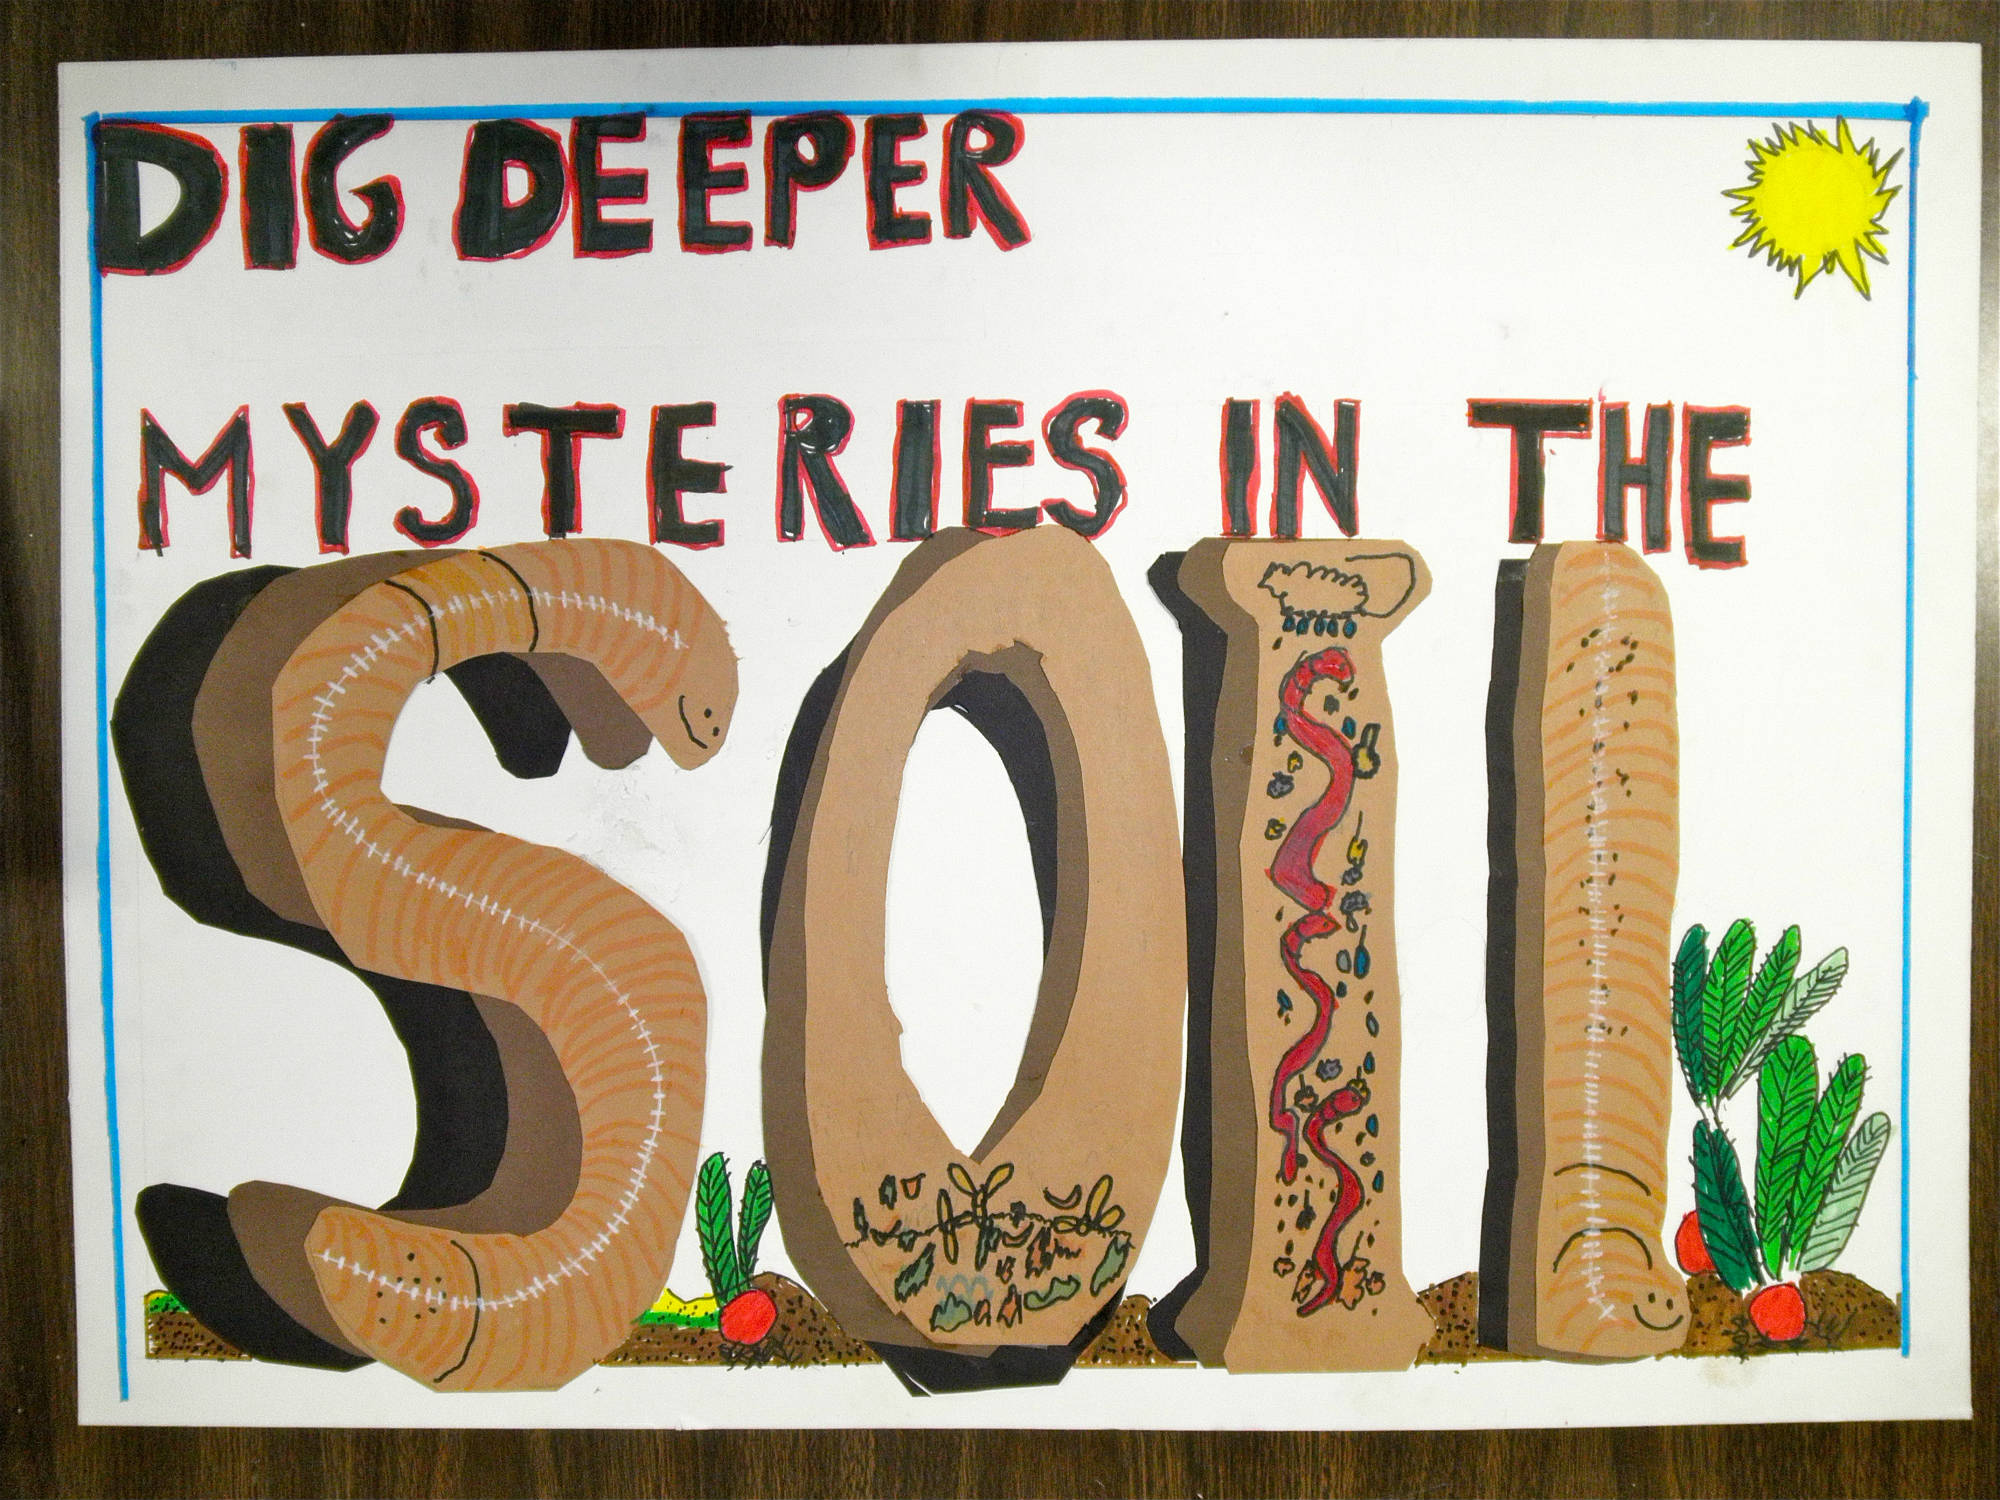 DIG DEEPER
MYSTERIES IN THE
SOIL